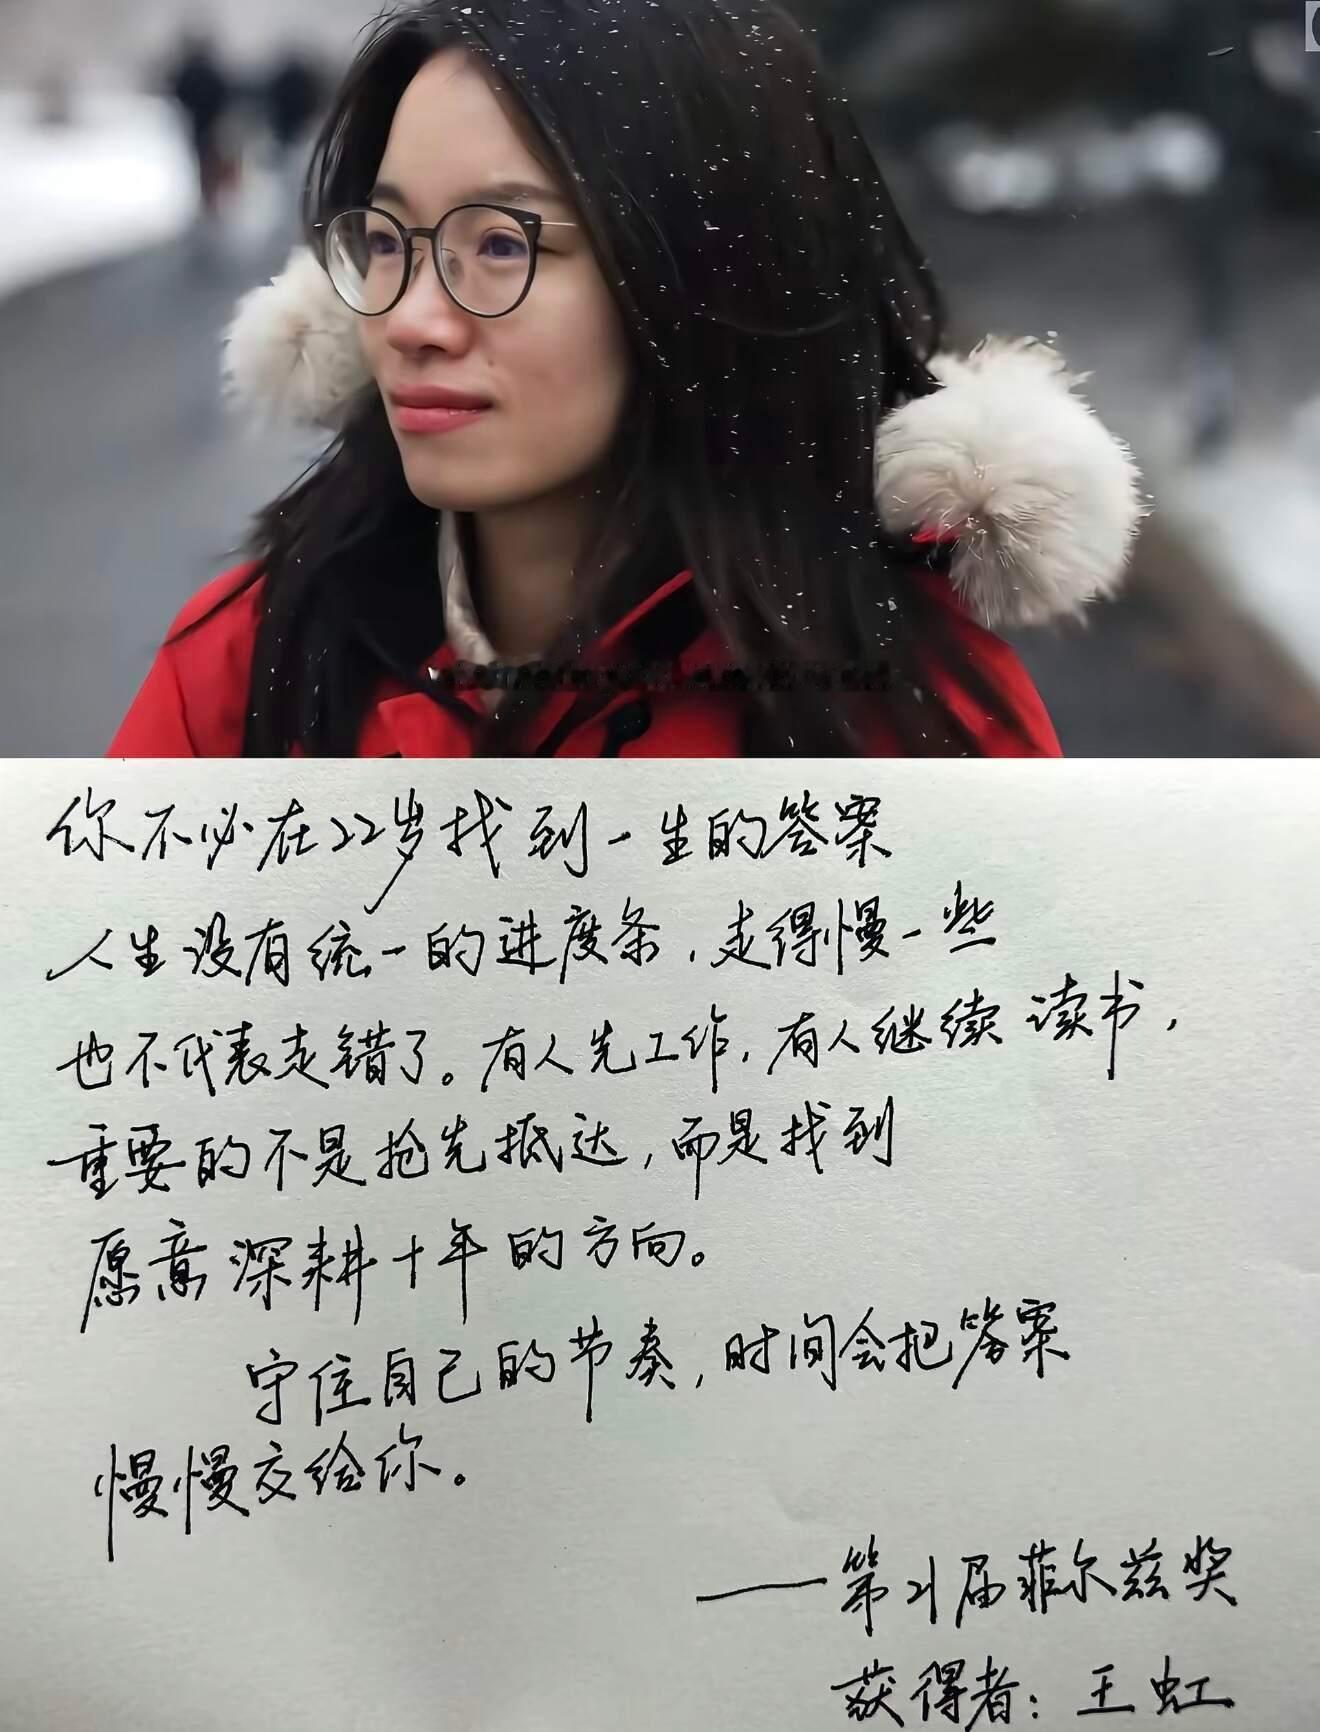 你不必在22岁找到一生的答案
人生没有统一的进度条，走得慢一些
也不代表走错了。有人先工作，有人继续读书，
重要的不是抢先抵达，而是找到
愿意深耕十年的方向。
守住自己的节奏，时间会把答案
慢慢交给你。
——第21届菲尔兹奖
获得者：王虹